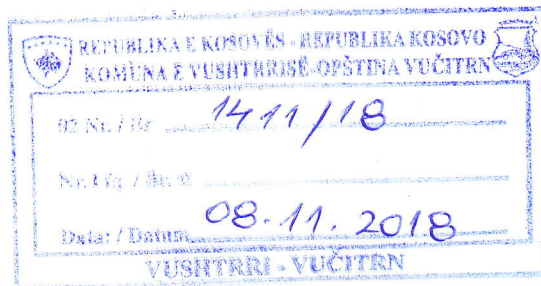 REPUBLIKA E KOSOVËS - REPUBLIKA KOSOVO
KOMUNA E VUSHTRRISË-OPŠTINA VUČITRN
02 Nr. / Br 1411/18
Nr. i
Data: / Datum 08.11.2018
VUSHTRRI - VUČITRN